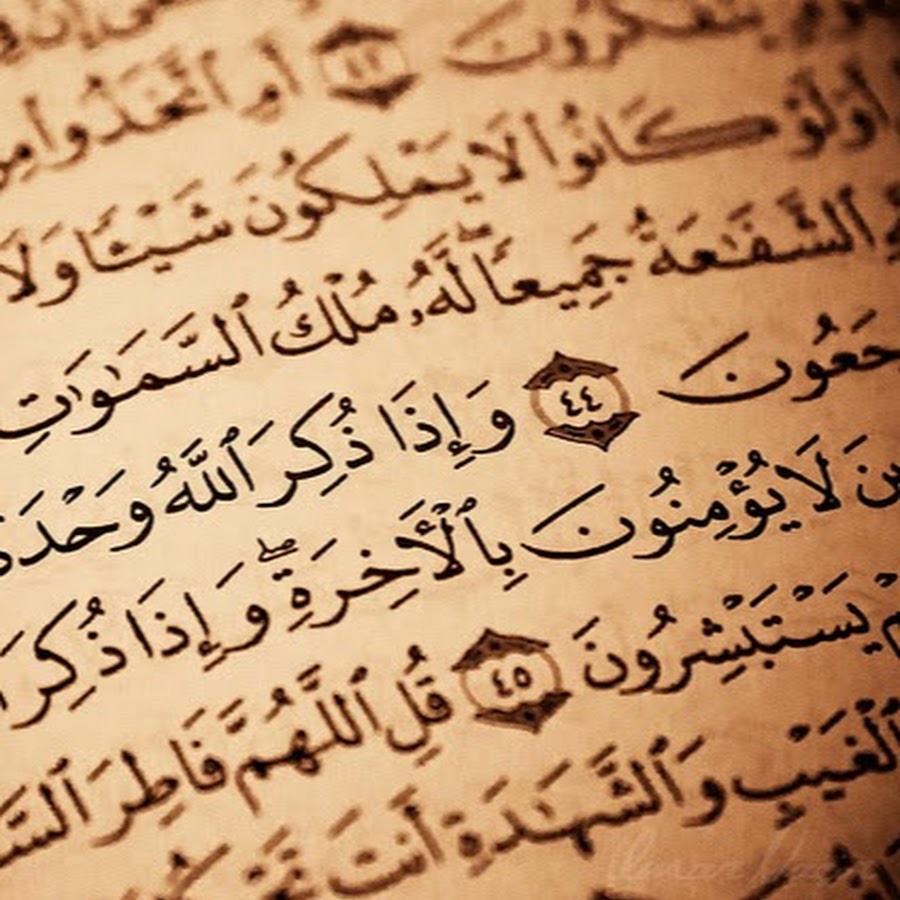 يَتَفَكَّرُونَ ٤٢ أَمِ ٱتَّخَذُوا۟ مِن
أَوَلَوْ كَانُوا۟ لَا يَمْلِكُونَ شَيْـًٔا وَلَا
ٱلشَّفَـٰعَةُ جَمِيعًا ۖ لَّهُۥ مُلْكُ ٱلسَّمَـٰوَٰتِ
جَعُونَ ٤٤ وَإِذَا ذُكِرَ ٱللَّهُ وَحْدَهُ
ينَ لَا يُؤْمِنُونَ بِٱلْـَٔاخِرَةِ ۖ وَإِذَا ذُكِرَ ا
مْ يَسْتَبْشِرُونَ ٤٥ قُلِ ٱللَّهُمَّ فَاطِرَ ٱلسَّ
ٱلْغَيْبِ وَٱلشَّهَـٰدَةِ أَنتَ تَحْكُ